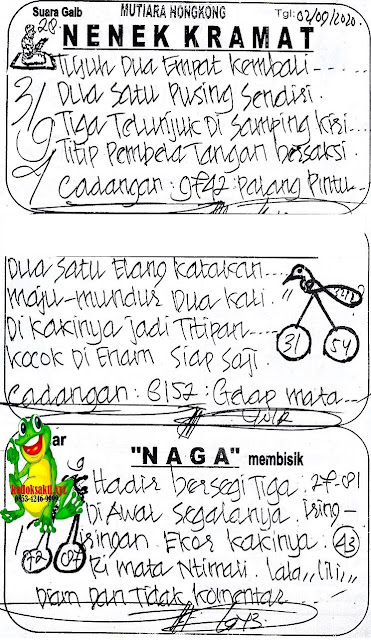 Suara Gaib MUTIARA HONGKONG Tgl: 02/09/2020.
28
NENEK KRAMAT
Tujuh Dua Empat Kembali
Dua Satu Pusing Sendiri.
Tiga Telunjuk Di Samping Kiri
Titip Pembela Tangan bersaksi.
Cadangan: 9742: Palang Pintu
31
9
Dua Satu Elang Katakan
maju-mundur Dua Kali. "
Di kakinya jadi Titipan
kocok Di Enam Siap Saji.
Cadangan: 8157: Gelap mata
31 54
ar "NAGA" membisik
Hadir bersegi Tiga
Di Awal Segalanya. iring-
iringan. Ekor kakinya. 43
Ki mata Ntimali. lala,, lili,,
Diam Dan Tidak komentar
kodoksakti.xyz
72 07